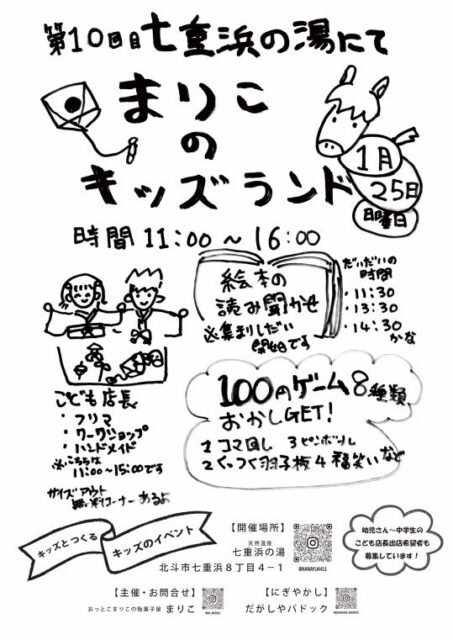 第10回目七重浜の湯にて
まりこ
の
キッズランド
1月
25日
日曜日
時間 11:00～16:00
絵本の
読み聞かせ
※集まりしだい
開始です
だいたいの
時間
・11:30
・13:30
・14:30
かな
100円ゲーム8種類
おかしGET!
1コマ回し 3ピンボール
2くっつく羽子板4福笑いなど
こども店長
・フリマ
・ワークショップ
・ハンドメイド
※こちらは
11:00～15:00です
サイズアウト
無料コーナーあるよ
キッズとつくる
キッズのイベント
【開催場所】
天然温泉
七重浜の湯
北斗市七重浜8丁目4－1
幼児さん～中学生の
こども店長出店希望者も
募集しています！
【主催・お問合せ】
おっとこまりこの駄菓子座 まりこ
【にぎやかし】
だがしやパドック